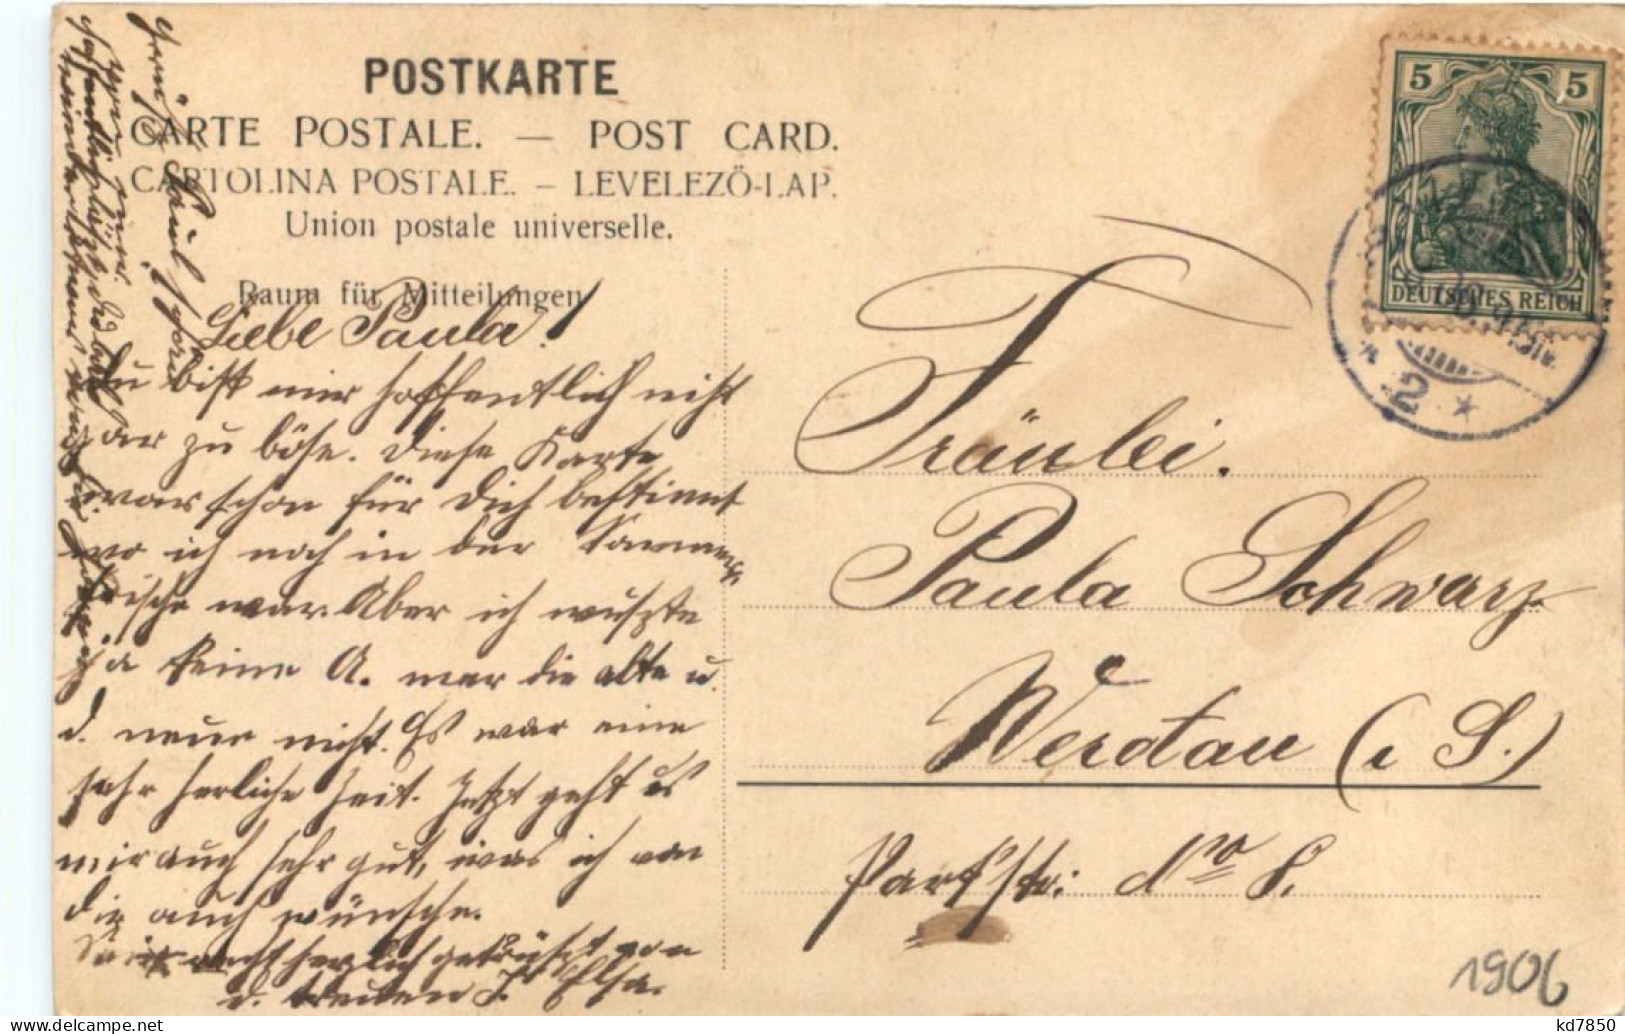 POSTKARTE
CARTE POSTALE. — POST CARD.
CARTOLINA POSTALE. – LEVELEZŐ-LAP.
Union postale universelle.
Raum für Mitteilungen
Liebe Paula!
Du bist mir hoffentlich nicht
gar zu böse. Diese Karte
war schon für Dich bestimmt
wo ich noch in der Sommer-
frische war. Aber ich wußte
ja keine A. war die alte u.
d. neue nicht. Es war eine
sehr herrliche Zeit. Jetzt geht es
mir auch sehr gut, was ich von
Dir auch wünsche.
Sei recht herzlich gegrüßt von
d. treuen F. Elsa.
5 5
DEUTSCHES REICH
* 2 *
Fräulei.
Paula Schwarz
Werdau (i S.)
Parkstr. No 8.
1906
kd7850